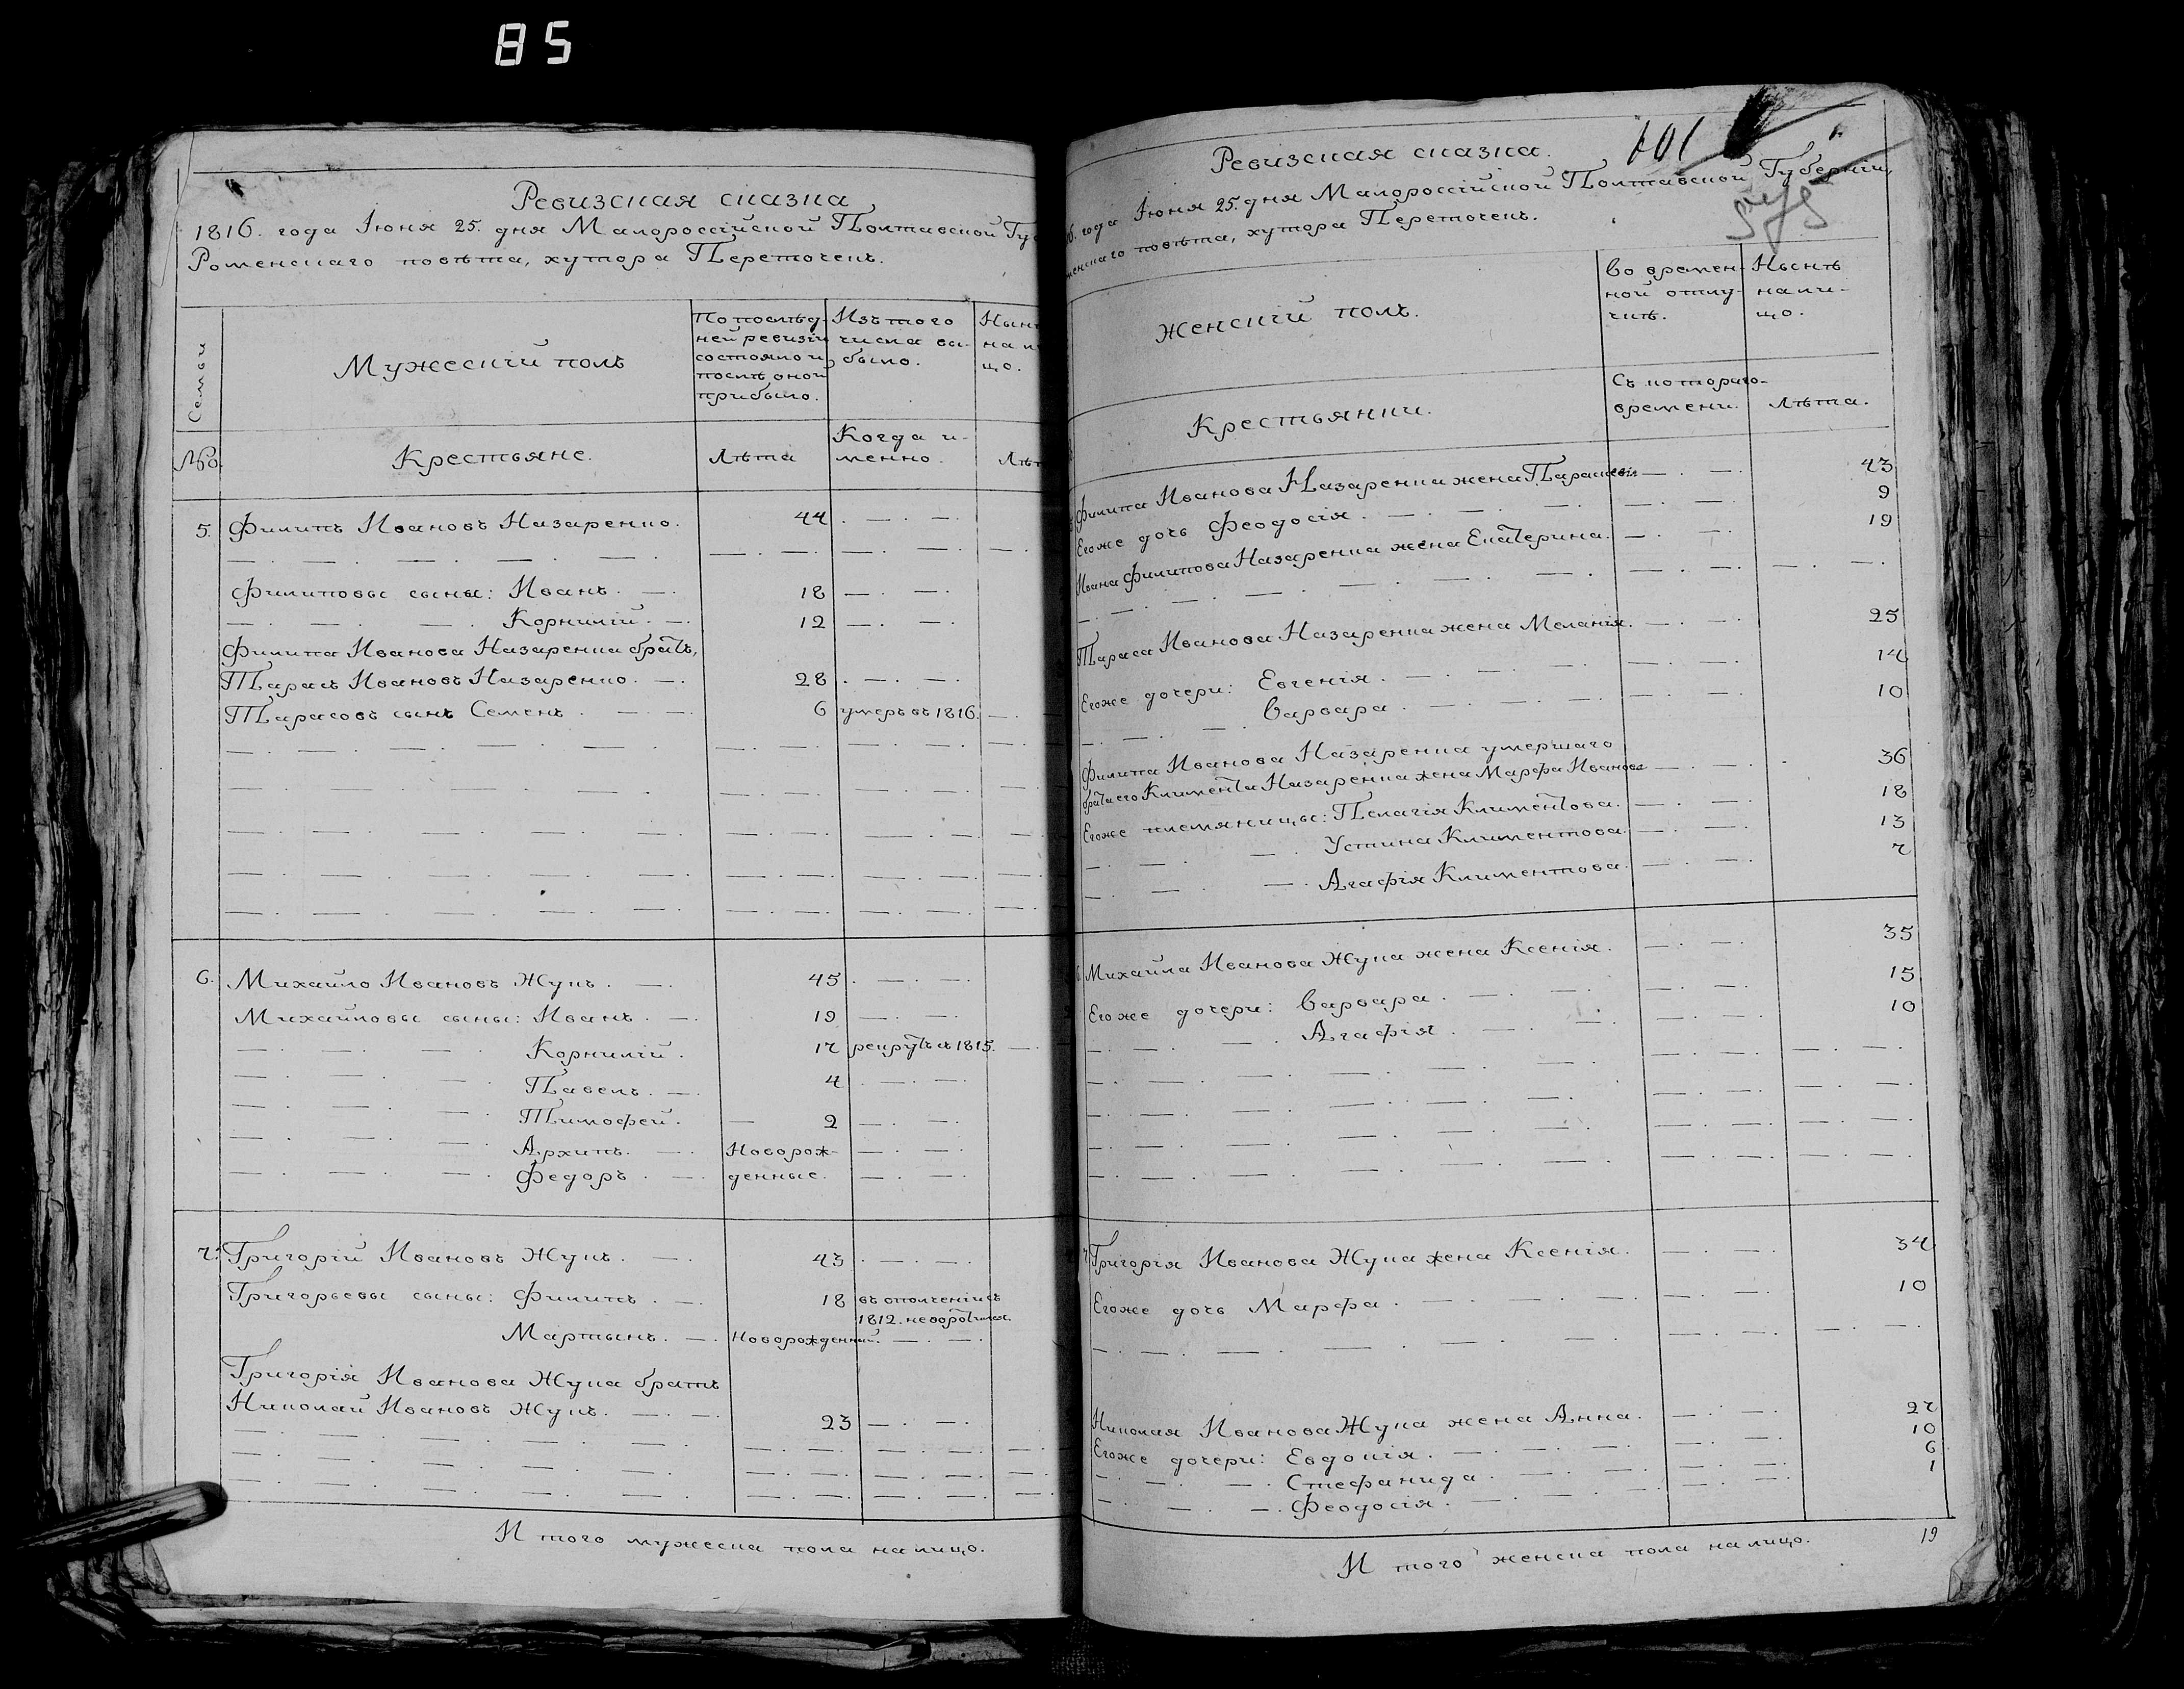 85
Ревизская сказка
1816. года Июня 25. дня Малороссійской Полтавской Гу
Роменскаго повѣта, хутора Переточекъ.
Семьи
Мужескій полъ
По послѣд-
ней ревизіи
состояло и
послѣ оной
прибыло.
Изъ того
числа вы-
было.
Нын
на ли
цо.
№о.
Крестьяне.
Лѣта
Когда и-
менно.
Лѣт
5. Филипъ Ивановъ Назаренко. 44
Филиповы сыны: Иванъ. 18
Корнилій. 12
Филипа Иванова Назаренка братъ,
Тарасъ Ивановъ Назаренко. 28
Тарасовъ сынъ Семенъ. 6 умеръ въ 1816.
6. Михайло Ивановъ Жукъ. 45
Михайловы сыны: Иванъ. 19
Корнилій. 17 рекрутъ съ 1815.
Павелъ. 4
Тимофей. 2
Архипъ. Новорож-
Федоръ. денные.
7. Григорій Ивановъ Жукъ. 43
Григорьевы сыны: Филипъ. 18 въ ополченіи съ
1812. неворотился.
Мартынъ. Новорожденный.
Григорія Иванова Жука братъ
Николай Ивановъ Жукъ. 23
И того мужеска пола на лицо.
101
Ревизская сказка.
6. года Июня 25. дня Малороссійской Полтавской Губерніи,
менскаго повѣта, хутора Переточекъ.
Женскій полъ.
Во времен-
ной отлу-
чкѣ.
Нынѣ
на ли-
цо.
Крестьянки.
Съ котораго
времени.
Лѣта.
Филипа Иванова Назаренка жена Параскевія 43
Егоже дочь Феодосія. 9
Ивана Филипова Назаренка жена Екатерина. 19
Тараса Иванова Назаренка жена Меланія. 25
Егоже дочери: Евгенія. 14
Варвара. 10
Филипа Иванова Назаренка умершаго
брата его Климента Назаренка жена Марфа Иванова 36
Егоже племяницы: Пелагія Климентова. 18
Устина Климентова. 13
Агафія Климентова. 7
6. Михайла Иванова Жука жена Ксенія. 35
Егоже дочери: Варвара. 15
Агафія. 10
7. Григорія Иванова Жука жена Ксенія. 34
Егоже дочь Марфа. 10
Николая Иванова Жука жена Анна. 27
Егоже дочери: Евдокія. 10
Стефанида. 6
Феодосія. 1
И того женска пола на лицо. 19